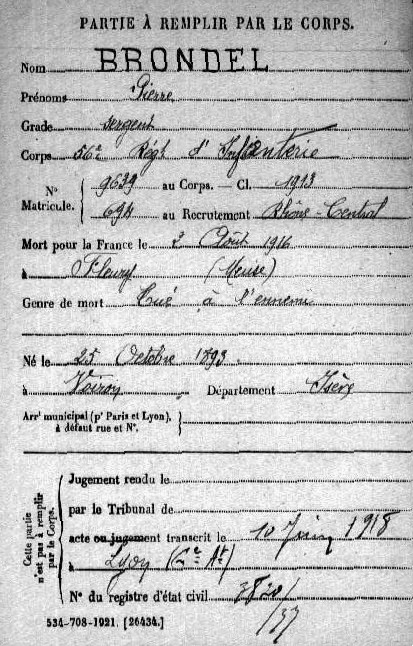 PARTIE À REMPLIR PAR LE CORPS.
Nom BRONDEL
Prénoms Pierre
Grade sergent
Corps 56e Régt d'Infanterie
N° Matricule. { 9639 au Corps. — Cl. 1913
694 au Recrutement Rhône-Central
Mort pour la France le 2 Août 1916
à Fleury (Meuse)
Genre de mort Tué à l'ennemi
Né le 25 Octobre 1893
à Voiron Département Isère
Arrt municipal (pr Paris et Lyon), à défaut rue et N°. }
Cette partie n'est pas à remplir par le Corps.
Jugement rendu le
par le Tribunal de
acte ou jugement transcrit le 10 Juin 1918
à Lyon (2e At)
N° du registre d'état civil
534-708-1921. [26434.]
/37